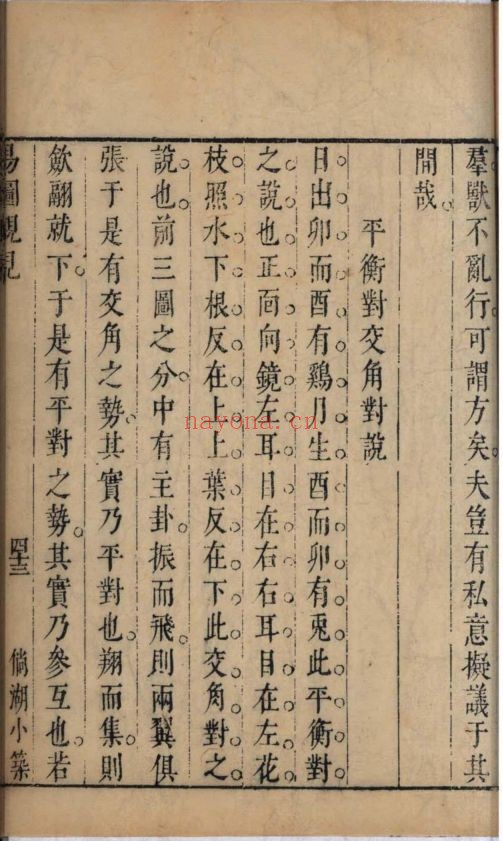 羣獸不亂行可謂方矣夫豈有私意擬議于其
間哉
平衡對交角對說
日出卯而酉有鷄月生酉而卯有兎此平衡對
之說也正面向鏡左耳目在右右耳目在左花
枝照水下根反在上上葉反在下此交角對之
說也前三圖之分中有主卦振而飛則兩翼俱
張于是有交角之勢其實乃平對也翔而集則
歛翮就下于是有平對之勢其實乃參互也若
易圖親見
四十三
倘湖小築
nayona.cn